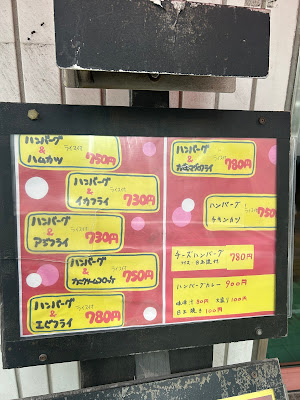 ハンバーグ
&
ハムカツ
ライス付
750円
ハンバーグ
&
イカフライ
ライス付
730円
ハンバーグ
&
アジフライ
ライス付
730円
ハンバーグ
&
カニクリームコロッケ
ライス付
750円
ハンバーグ
&
エビフライ
ライス付
780円
ハンバーグ
&
ライス付
780円
ハンバーグ
&
チキンカツ
ライス付
750
チーズハンバーグ
780円
ハンバーグカレー 900円
味噌汁 80円 大盛 100円
目玉焼き 100円